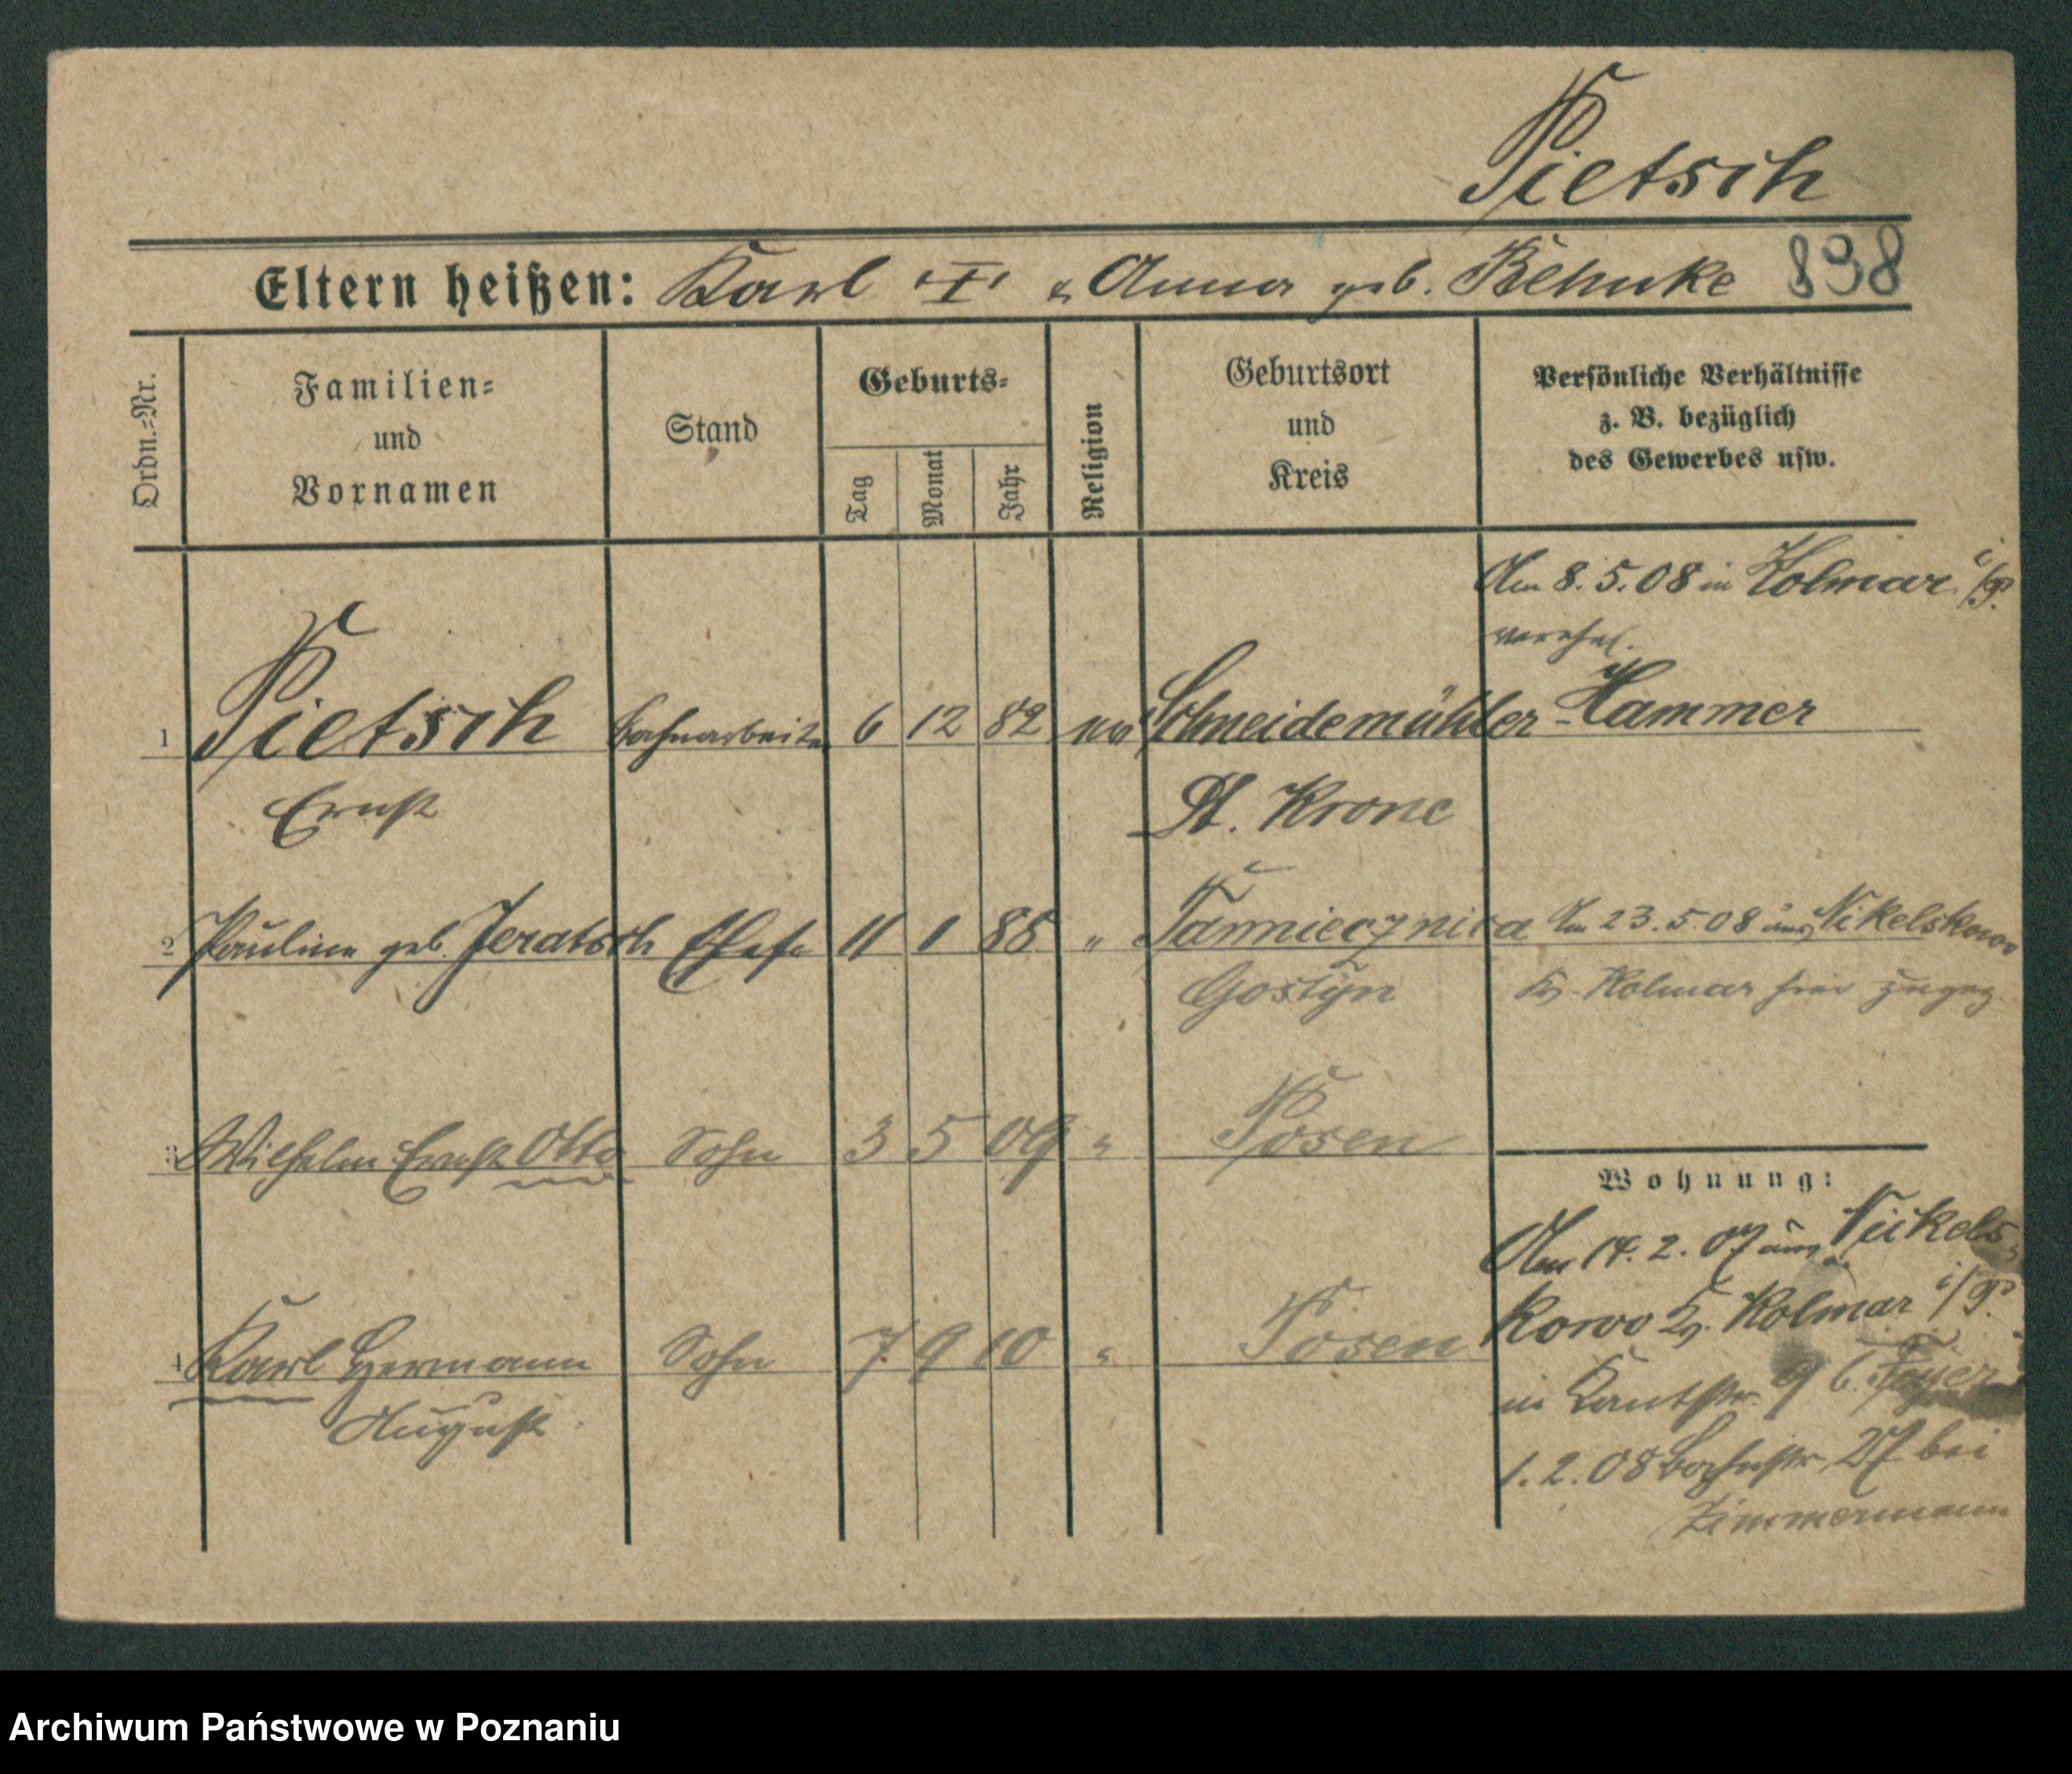 Pietsch
Eltern heißen: Karl "T" & Anna geb. Behnke 838
Ordn.=Nr.
Familien=
und
Vornamen
Stand
Geburts=
Tag
Monat
Jahr
Religion
Geburtsort
und
Kreis
Persönliche Verhältnisse
z. B. bezüglich
des Gewerbes usw.
Am 8. 5. 08 in Kolmar i/P.
verehel.
1 Pietsch Bahnarbeiter 6 12 82 Schneidemühler-Hammer
Ernst Dt. Krone
2 Pauline geb. Jeratsch Ehefr. 11 1 88 " Am 23. 5. 08 aus Nikelskowo
Gostyn Kr. Kolmar hier zugez.
3 Wilhelm Ernst Otto Sohn 3 5 09 " Posen
Wohnung:
Am 14. 2. 07 aus Nickels-
kowo Kr. Kolmar i/P.
4 Karl Hermann Sohn 7. 9 10 " Posen
August
in Kantstr. 9 b.
1. 2. 08 Bahnstr. 27 bei
Zimmermann
Archiwum Państwowe w Poznaniu